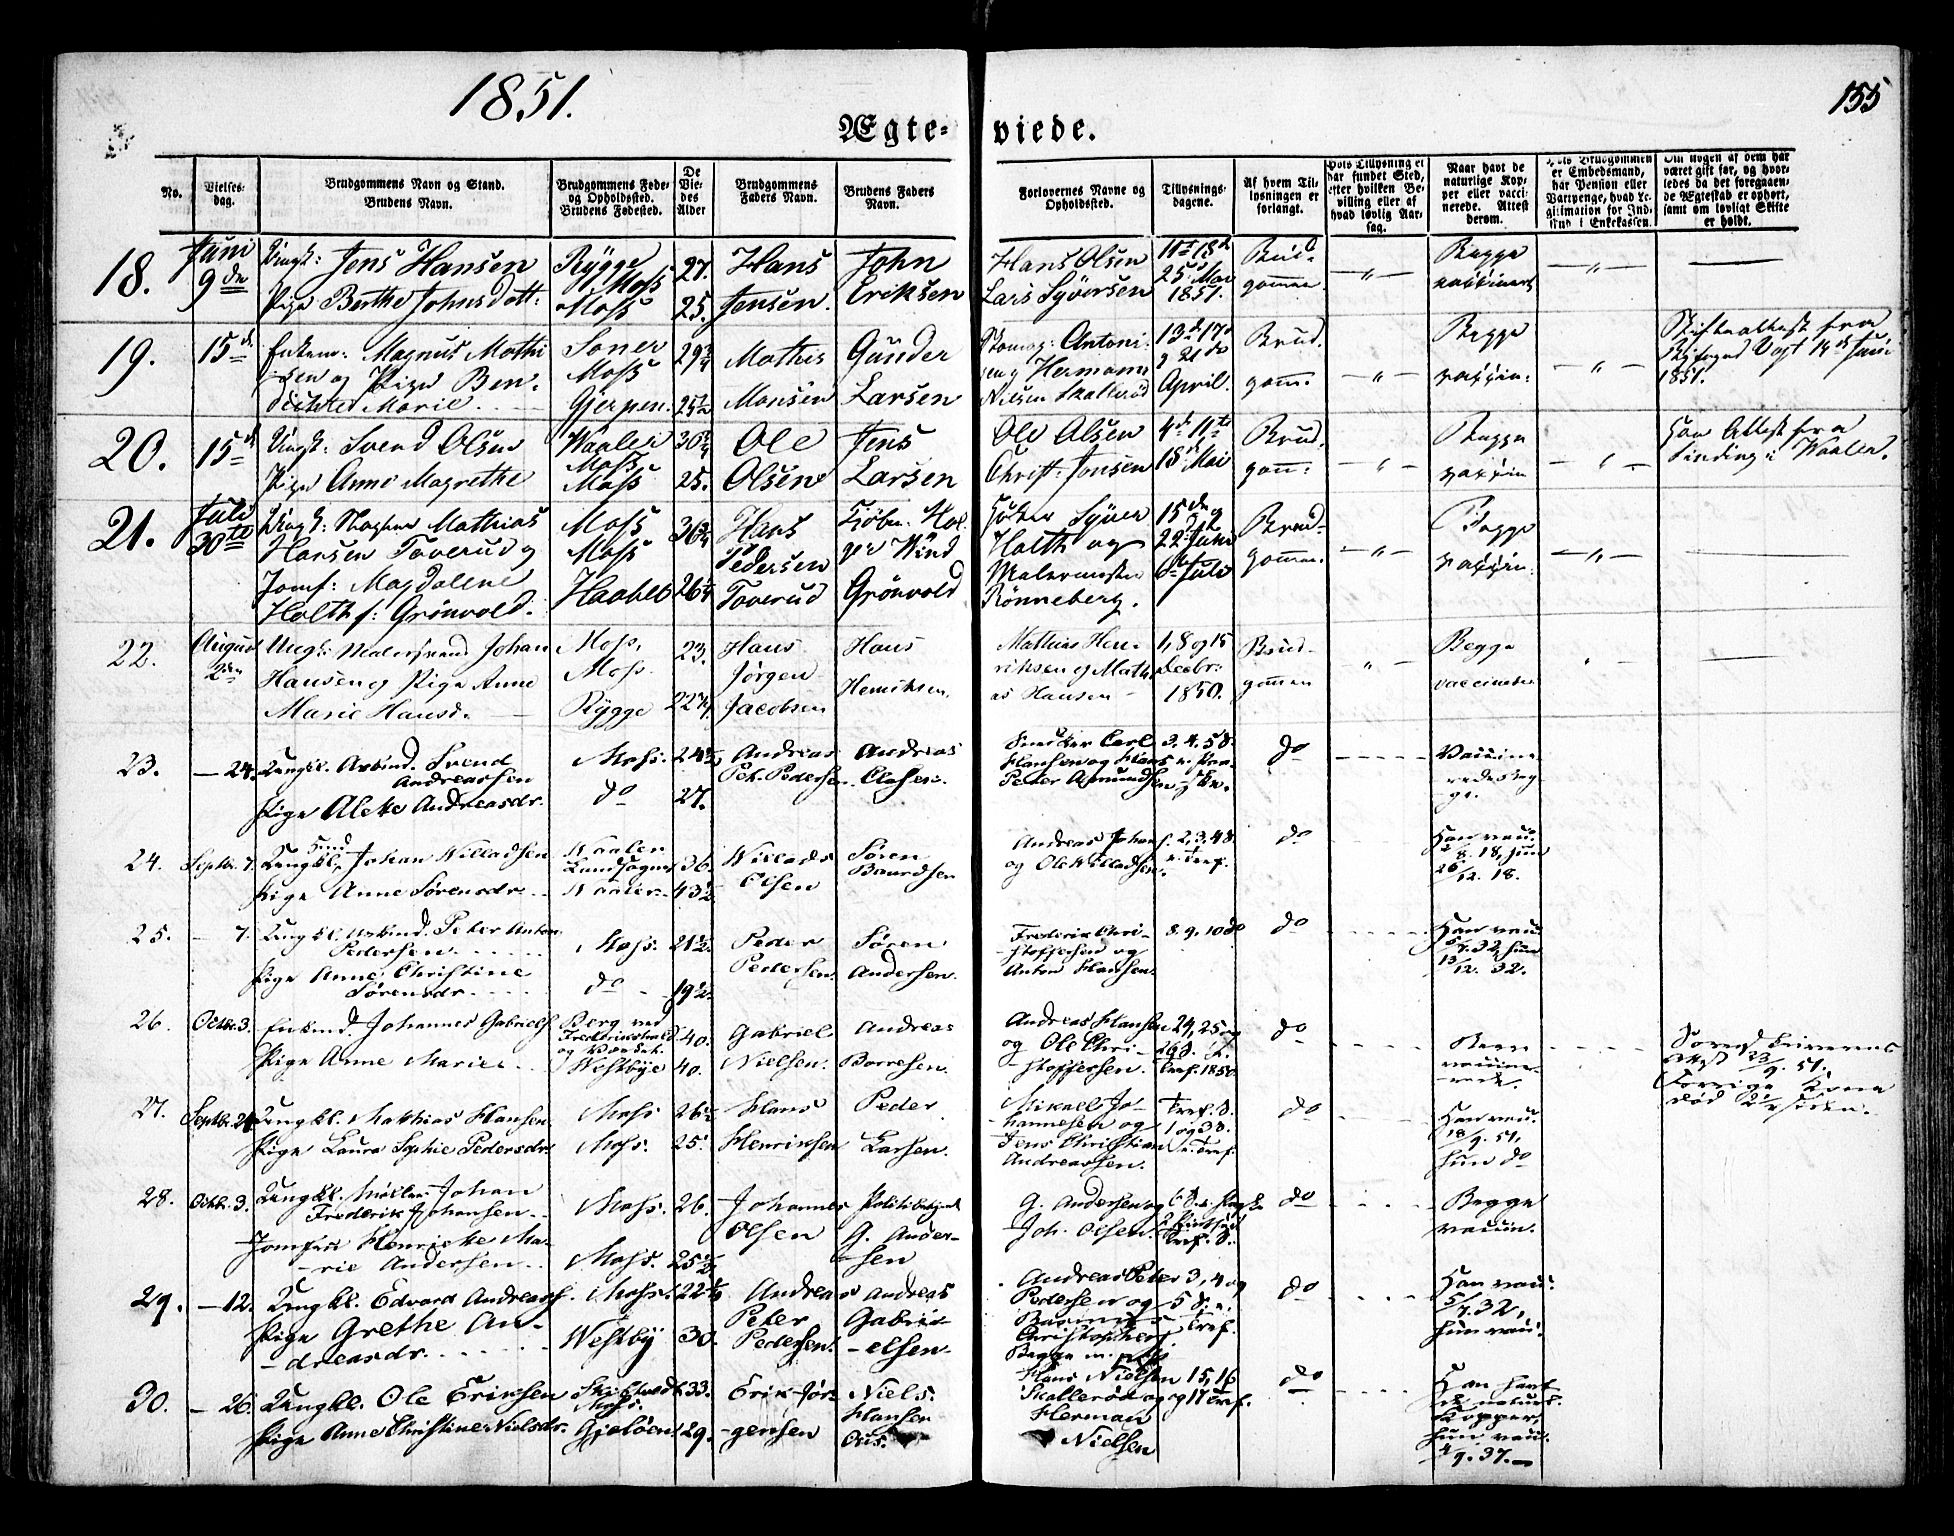 1851.
155
Ægte-
viede.
No.
Vielses-
dag.
Brudgommens Navn og Stand.
Brudens Navn.
Brudgommens Føde-
og Opholdssted.
Brudens Fødested.
De
Vie-
des
Alder
Brudgommens
Faders Navn.
Brudens Faders
Navn.
Forlovernes Navne og
Opholdssted.
Tillysnings-
dagene.
Af hvem Til-
lysningen er
forlangt.
Hvis Tillysning ei
har fundet Sted,
efter hvilken Be-
villing eller af
hvad lovlig Aar-
sag.
Naar havt de
naturlige Kop-
per eller vacci-
nerede. Attest
derom.
Hvis Brudgommen
er Embedsmand,
har Pension eller
Vartpenge, hvad Le-
gitimation for Ind-
skud i Enkekassen.
Om nogen af dem har
været gift før, og hvor-
ledes da det foregaaen-
de Ægteskab er ophørt,
samt om lovligt Skifte
er holdt.
18.
Juni
9de
Ungk: Jens Hansen
Pige Berthe Johnsdott:
Rygge
Moss
Moss
27.
25.
Hans
Jensen.
John
Eriksen
Hans Olsen
Lars Syversen
11te 18de
25de Mai
1851.
Brud-
gommen
Begge
vaccineret
19.
15de
Enkem: Magnus Mathi
sen og Pige Ben-
dichte Marie.
Soner
Moss
Gjerpen.
Mathis
Monsen
Gunder
Larsen
Antoni
sen og Hermann
Nielsen Skallerød
13de 17de
og 21de
April.
Brud-
gom:
Begge
vaccin:
Skifteattest fra
1851.
20.
15de
Ungk: Svend Olsen
Pige Anne Magrethe
Waaler
Moss
Moss
25.
Ole
Olsen
Jens
Larsen
Ole Olsen
Christ: Jensen
4de 11te
18de Mai
Brud-
gom:
Begge
vaccin
har Attest fra
i Waaler.
21.
Juli
30te
Ungk: Mathias
Hansen Toverud og
Jomf: Magdalene
Holth f: Grönvold.
Moss
Moss
Haabel
Hans
Pedersen
Toverud
Wind
Grönvold
Syver
Holth og
Malermester
Rønneberg.
15de og
22de Juni
6te Juli
Brud-
gommen.
Begge
vaccin:
22.
August
2den
Ungk: Malersvend Johan
Hansen og Pige Anne
Marie Hansd.
Moss,
Moss.
Rygge
23.
Hans
Jørgen
Jacobsen
Hans
Henriksen.
Mathias Hen-
riksen og Mathi
as Hansen
1, 8 og 15
Decbr:
1850.
Brud-
gommen
Begge
vaccinerte
23.
— 24.
Ungkl. Arbmd. Svend
Andreassen
Pige Alette Andreasdr.
Moss.
do
27.
Andreas
Pet. Pedersen.
Andreas
Olafsen.
Carl
Hansen og Hans
Peder Asmundsen
do
Vaccine-
rede Beg-
ge.
24.
Septbr. 7.
Ungkl. Johan Willadsen
Pige Anne Sørensdr.
Waaler
Landsogn
Waaler.
36.
Willads
Olsen
Søren
Baardsen
Andreas Johans.
og Ole Willadsen.
do
Han vac.
18, hun
26/12. 18.
25.
— 7.
Ungkl. Arbmd. Peter Anton
Pedersen.
Pige Anne Christine
Sørensdr.
Moss.
do
21½
19½
Peder
Pedersen.
Søren
Andersen.
Frederik Chri-
stoffersen og
Anton Hansen.
do
Han vac.
32, hun
13/12. 32.
26.
Octbr. 3.
Enkmd. Johannes Gabriels.
Pige Anne Marie
Berg ved
Frederikshald
Westbye
40.
40.
Gabriel
Nielsen.
Andreas
Borresen.
Andreas Hansen
og Ole Chri-
stoffersen.
24, 25 og
do
vaccine-
rede.
Forrige Kone
død
27.
Septbr. 24
Ungkl. Mathias Hansen
Pige Laura Sophie Pedersdr.
Moss
Moss.
26½
25
Hans
Henriksen
Peder
Larsen.
Mikael Jo-
hannesen og
Jens Christian
Andreassen.
do
Han vac.
18/9. 51,
hun do
28.
Octbr. 3.
Ungkl. Johan
Frederik Johansen.
Jomfru Henrikke Ma-
rie Andersen.
Moss.
Moss.
26.
25½
Johannes
Olsen
Politibetjent
G. Ander-
sen
G. Andersen og
Joh. Olsen.
do
Begge
vaccin.
29.
— 12.
Ungkl. Edvard Andreass.
Pige Grethe An-
dreasdr.
Moss.
Westby
30.
Andreas
Peter
Pedersen.
Andreas
Gabri-
elsen
Andreas Peter
Pedersen og
Christophers.
3, 4 og
5
do
Han vac.
5/7. 32,
hun vac.
30.
— 26.
Ungkl. Ole Eriksen
Pige Anne Christine Nielsdr.
Moss.
Gjeløen.
33.
29.
Erik Jør-
gensen
Niels
Hansen
Hans Nielsen
Skallerød og
Herman
Nielsen
15, 16
og 17
do
Han havt
de naturl.
Kopper,
hun vac.
4/9. 37.